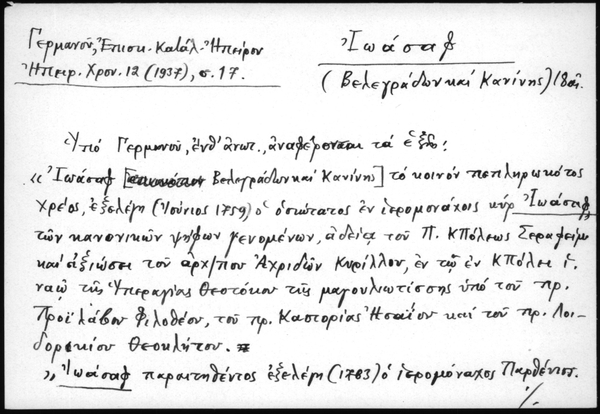 Γερμανοῦ, Ἐπισκ. Κατάλ. Ἠπείρου
Ἠπειρ. Χρον. 12 (1937), σ. 17.
Ἰωάσαφ
(Βελεγράδων καὶ Κανίνης) 18 αἰ.
Ὑπὸ Γερμανοῦ, ἐνθ' ἀνωτ., ἀναφέρονται τὰ ἑξῆς:
« Ἰωάσαφ [Βελεγράδων καὶ Κανίνης] τὸ κοινὸν πεπληρωκότος
χρέος, ἐξελέγη (Ἰούνιος 1759) ὁ ὁσιώτατος ἐν ἱερομονάχοις κὺρ Ἰωάσαφ,
τῶν κανονικῶν ψήφων γενομένων, ἀδείᾳ τοῦ Π. ΚΠόλεως Σεραφεὶμ
καὶ ἀξιώσει τοῦ ἀρχ/που Ἀχριδῶν Κυρίλλου, ἐν τῷ ἐν ΚΠόλει ἱ.
ναῷ τῆς Ὑπεραγίας Θεοτόκου τῆς μαγουλιωτίσσης ὑπὸ τοῦ πρ.
Προϊλάβου Φιλοθέου, τοῦ πρ. Καστορίας Ἠσαΐου καὶ τοῦ πρ. Λοι-
δορικίου Θεοκλήτου.
» Ἰωάσαφ παραιτηθέντος ἐξελέγη (1783) ὁ ἱερομόναχος Παρθένιος.
./.